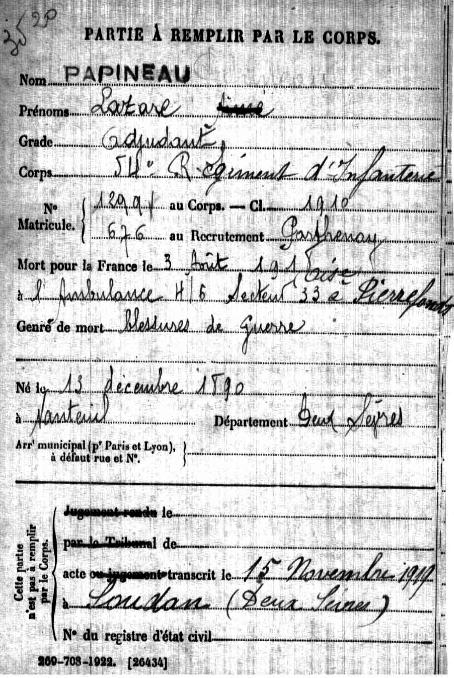 PARTIE À REMPLIR PAR LE CORPS.
Nom PAPINEAU
Prénoms Lazare
Grade Adjudant
Corps 54e Régiment d'Infanterie
N° Matricule. { 1299 au Corps. — Cl. 1910
676 au Recrutement Parthenay
Mort pour la France le 3 Août 191 Oise
à l'Ambulance 4/6 Secteur 33 à Pierrefonds
Genre de mort blessures de Guerre
Né le 13 décembre 1890
à Nanteuil Département Deux Sèvres
Arrt municipal (pr Paris et Lyon), à défaut rue et N°. }
Cette partie n'est pas à remplir par le Corps.
Jugement rendu le
par le Tribunal de
acte ou jugement transcrit le 15 Novembre 1919
à Soudan (Deux Sèvres)
N° du registre d'état civil
269-708-1922. [26434]